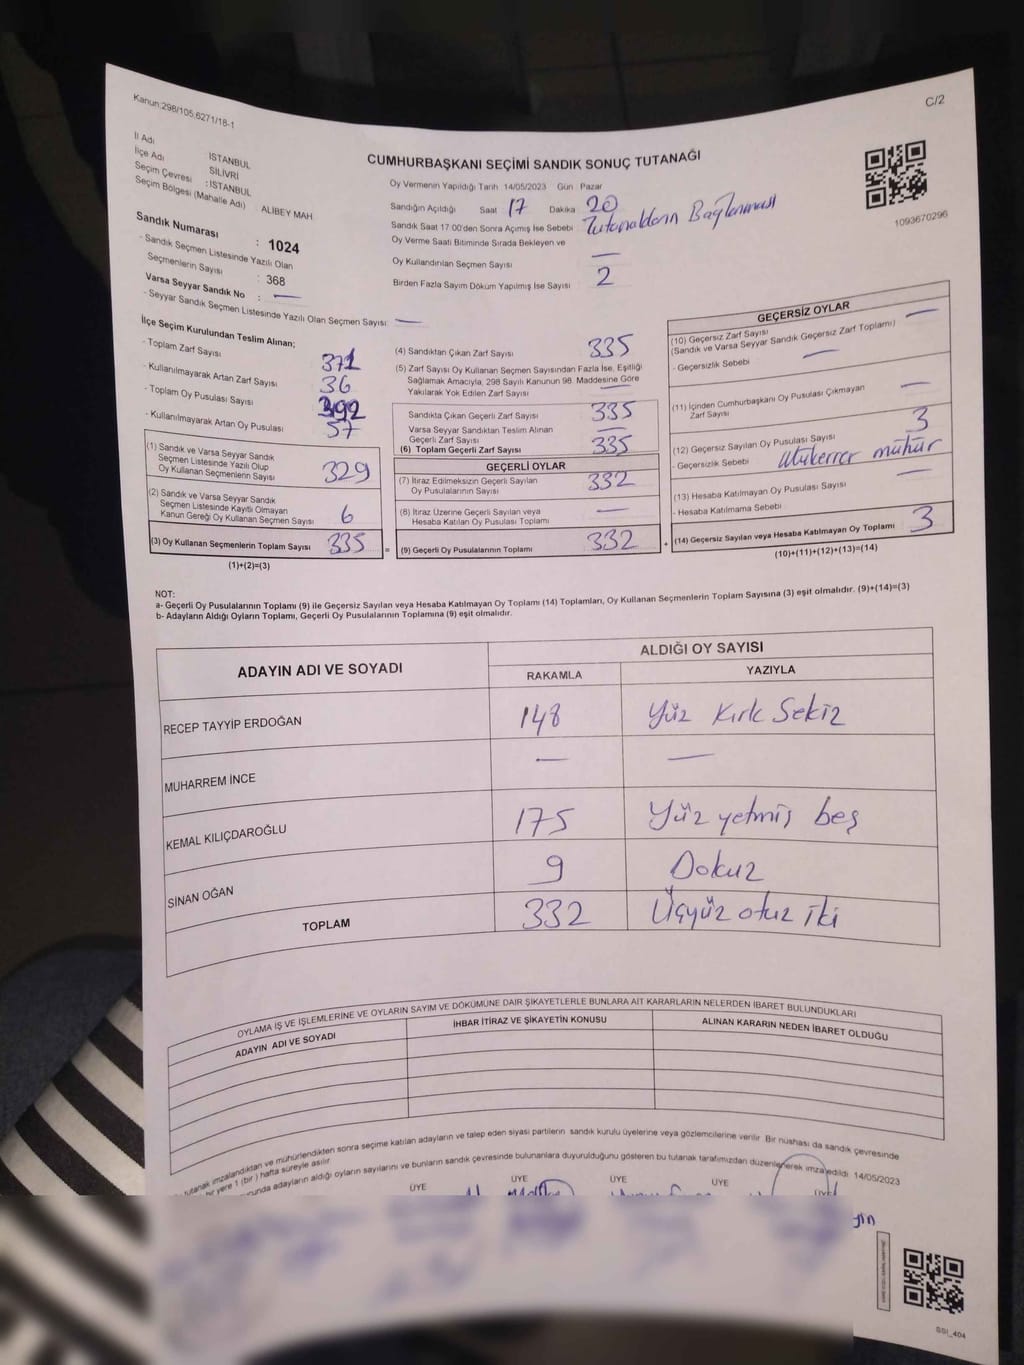 Kanun:298/105,6271/18-1
C/2
İl Adı İSTANBUL
İlçe Adı SİLİVRİ
Seçim Çevresi :İSTANBUL
Seçim Bölgesi (Mahalle Adı) ALİBEY MAH
CUMHURBAŞKANI SEÇİMİ SANDIK SONUÇ TUTANAĞI
Oy Vermenin Yapıldığı Tarih 14/05/2023 Gün Pazar
Sandığın Açıldığı Saat 17 Dakika 20
Sandık Saat 17:00'den Sonra Açımış İse Sebebi Tutanakların Bağlanması
Oy Verme Saati Bitiminde Sırada Bekleyen ve
Oy Kullandırılan Seçmen Sayısı —
Birden Fazla Sayım Döküm Yapılmış İse Sayısı 2
1093670296
Sandık Numarası : 1024
- Sandık Seçmen Listesinde Yazılı Olan
Seçmenlerin Sayısı : 368
Varsa Seyyar Sandık No : —
- Seyyar Sandık Seçmen Listesinde Yazılı Olan Seçmen Sayısı —
İlçe Seçim Kurulundan Teslim Alınan;
- Toplam Zarf Sayısı 371
- Kullanılmayarak Artan Zarf Sayısı 36
- Toplam Oy Pusulası Sayısı 392
- Kullanılmayarak Artan Oy Pusulası 57
(1) Sandık ve Varsa Seyyar Sandık
Seçmen Listesinde Yazılı Olup
Oy Kullanan Seçmenlerin Sayısı 329
(2) Sandık ve Varsa Seyyar Sandık
Seçmen Listesinde Kayıtlı Olmayan
Kanun Gereği Oy Kullanan Seçmen Sayısı 6
(3) Oy Kullanan Seçmenlerin Toplam Sayısı 335
(1)+(2)=(3)
=
(4) Sandıktan Çıkan Zarf Sayısı 335
(5) Zarf Sayısı Oy Kullanan Seçmen Sayısından Fazla İse, Eşitliği
Sağlamak Amacıyla, 298 Sayılı Kanunun 98. Maddesine Göre
Yakılarak Yok Edilen Zarf Sayısı —
Sandıkta Çıkan Geçerli Zarf Sayısı 335
Varsa Seyyar Sandıktan Teslim Alınan
Geçerli Zarf Sayısı —
(6) Toplam Geçerli Zarf Sayısı 335
GEÇERLİ OYLAR
(7) İtiraz Edilmeksizin Geçerli Sayılan
Oy Pusulalarının Sayısı 332
(8) İtiraz Üzerine Geçerli Sayılan veya
Hesaba Katılan Oy Pusulası Toplamı —
(9) Geçerli Oy Pusulalarının Toplamı 332
+
GEÇERSİZ OYLAR
(10) Geçersiz Zarf Sayısı —
(Sandık ve Varsa Seyyar Sandık Geçersiz Zarf Toplamı)
- Geçersizlik Sebebi —
(11) İçinden Cumhurbaşkanı Oy Pusulası Çıkmayan
Zarf Sayısı —
(12) Geçersiz Sayılan Oy Pusulası Sayısı 3
- Geçersizlik Sebebi Mükerrer mühür
(13) Hesaba Katılmayan Oy Pusulası Sayısı —
- Hesaba Katılmama Sebebi
(14) Geçersiz Sayılan veya Hesaba Katılmayan Oy Toplamı 3
(10)+(11)+(12)+(13)=(14)
NOT:
a- Geçerli Oy Pusulalarının Toplamı (9) ile Geçersiz Sayılan veya Hesaba Katılmayan Oy Toplamı (14) Toplamları, Oy Kullanan Seçmenlerin Toplam Sayısına (3) eşit olmalıdır. (9)+(14)=(3)
b- Adayların Aldığı Oyların Toplamı, Geçerli Oy Pusulalarının Toplamına (9) eşit olmalıdır.
ADAYIN ADI VE SOYADI ALDIĞI OY SAYISI
RAKAMLA YAZIYLA
RECEP TAYYİP ERDOĞAN 148 Yüz Kırk Sekiz
MUHARREM İNCE — —
KEMAL KILIÇDAROĞLU 175 Yüz yetmiş beş
SİNAN OĞAN 9 Dokuz
TOPLAM 332 Üçyüz otuz iki
OYLAMA İŞ VE İŞLEMLERİNE VE OYLARIN SAYIM VE DÖKÜMÜNE DAİR ŞİKAYETLERLE BUNLARA AİT KARARLARIN NELERDEN İBARET BULUNDUKLARI
ADAYIN ADI VE SOYADI İHBAR İTİRAZ VE ŞİKAYETİN KONUSU ALINAN KARARIN NEDEN İBARET OLDUĞU
tutanak imzalandıktan ve mühürlendikten sonra seçime katılan adayların ve talep eden siyasi partilerin sandık kurulu üyelerine veya gözlemcilerine verilir. Bir nüshası da sandık çevresinde
bir yere 1 (bir) hafta süreyle asılır.
adayların aldığı oyların sayılarını ve bunların sandık çevresinde bulunanlara duyurulduğunu gösteren bu tutanak tarafımızdan düzenlenerek imza edildi. 14/05/2023
ÜYE ÜYE ÜYE ÜYE
SSI_404